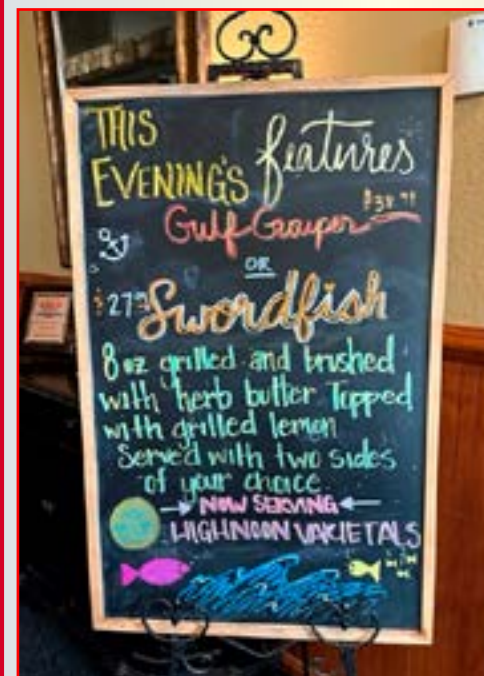 THIS
EVENING'S features
Gulf Grouper
OR
Swordfish
8 oz grilled and brushed
with herb butter Topped
with grilled lemon
Served with two sides
of your choice
NOW SERVING
HIGHNOON VARIETALS